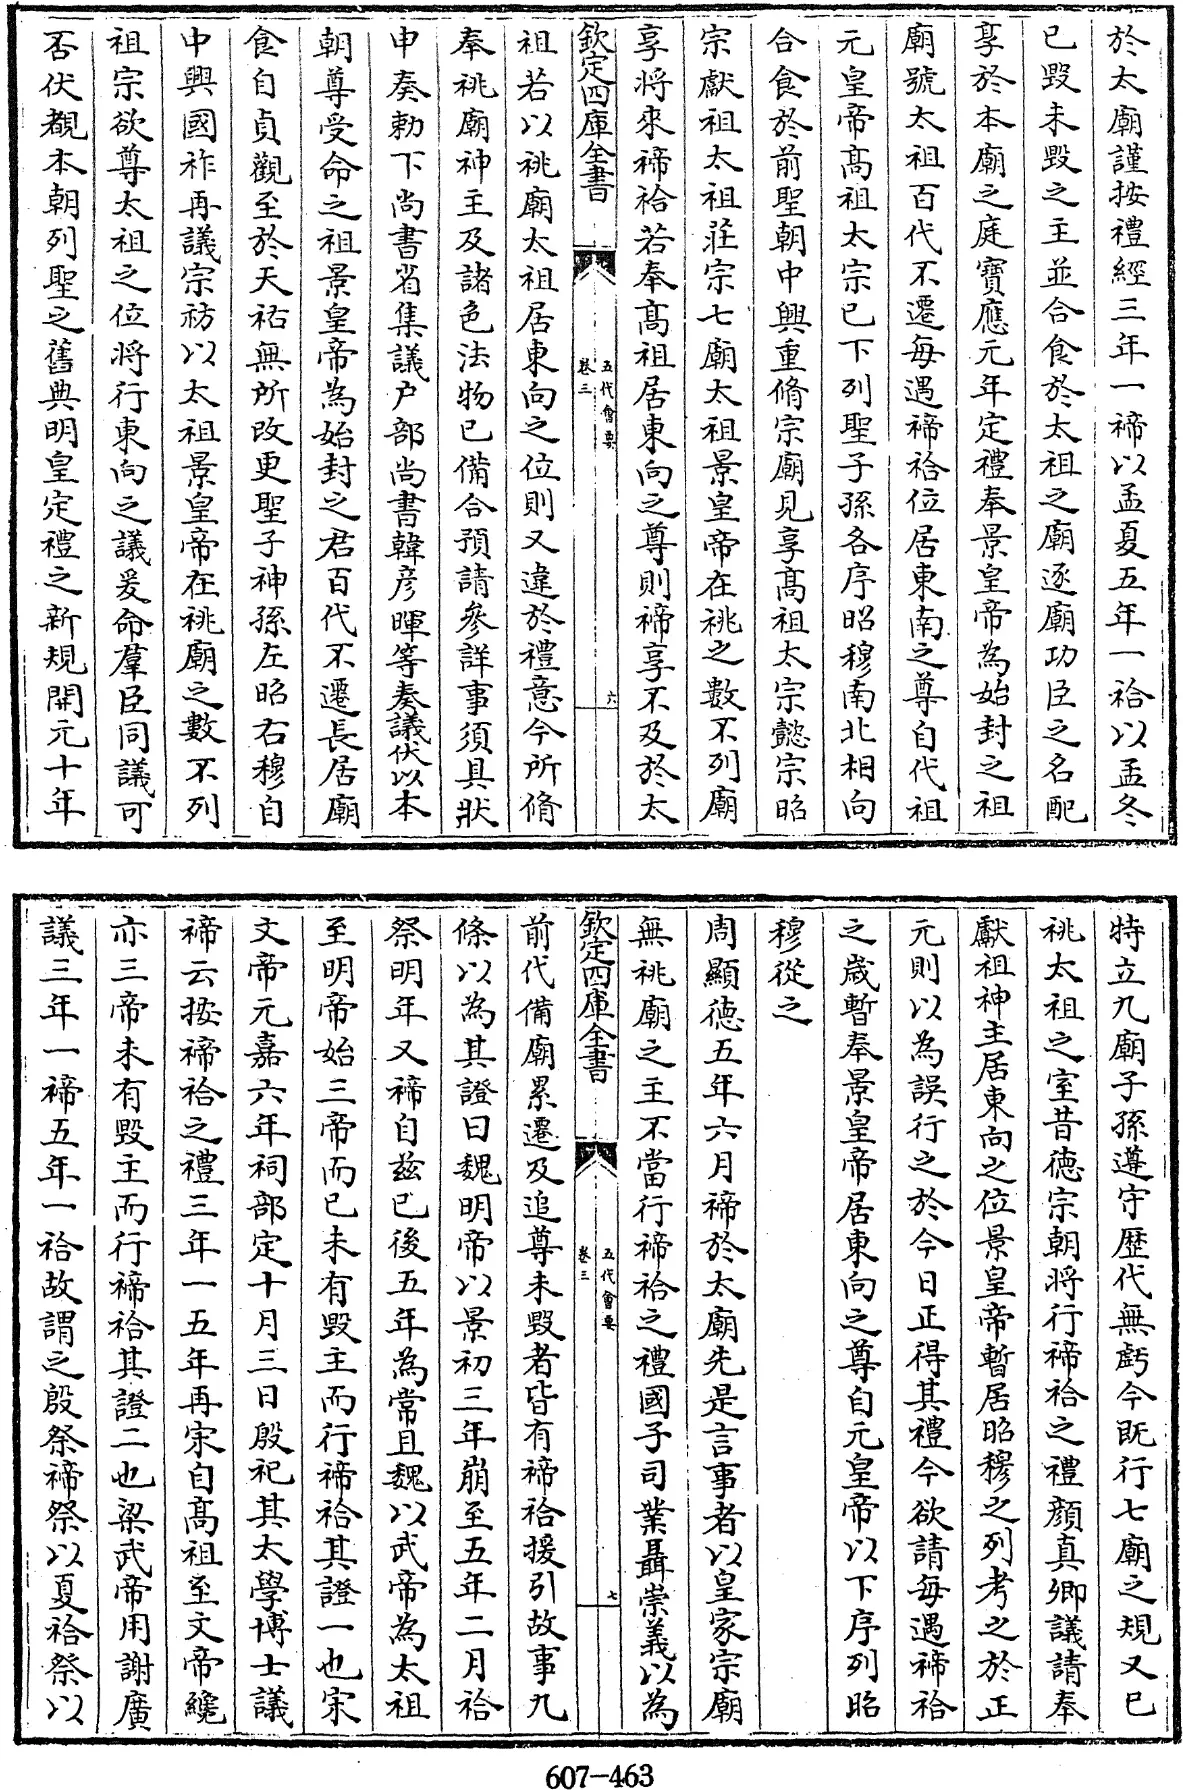 於太廟謹按禮經三年一禘以孟夏五年一祫以孟冬
已毀未毀之主並合食於太祖之廟逐廟功臣之名配
享於本廟之庭寶應元年定禮奉景皇帝為始封之祖
廟號太祖百代不遷每遇禘祫位居東南之尊自代祖
元皇帝髙祖太宗已下列聖子孫各序昭穆南北相向
合食於前聖朝中興重脩宗廟見享髙祖太宗懿宗昭
宗獻祖太祖莊宗七廟太祖景皇帝在祧之數不列廟
享將來禘祫若奉髙祖居東向之尊則禘享不及於太
欽定四庫全書
五代會要
卷三
六
祖若以祧廟太祖居東向之位則又違於禮意今所脩
奉祧廟神主及諸色法物已備合預請參詳事須具狀
申奏勅下尚書省集議户部尚書韓彦暉等奏議伏以本
朝尊受命之祖景皇帝為始封之君百代不遷長居廟
食自貞觀至於天祐無所改更聖子神孫左昭右穆自
中興國祚再議宗祊以太祖景皇帝在祧廟之數不列
祖宗欲尊太祖之位將行東向之議爰命羣臣同議可
否伏覩本朝列聖之舊典明皇定禮之新規開元十年
特立九廟子孫遵守歴代無虧今既行七廟之規又已
祧太祖之室昔德宗朝将行禘祫之禮顔真卿議請奉
獻祖神主居東向之位景皇帝暫居昭穆之列考之於正
元則以為誤行之於今日正得其禮今欲請每遇禘祫
之嵗暫奉景皇帝居東向之尊自元皇帝以下序列昭
穆從之
周顯德五年六月禘於太廟先是言事者以皇家宗廟
無祧廟之主不當行禘祫之禮國子司業聶崇義以為
欽定四庫全書
五代會要
卷三
七
前代備廟累遷及追尊未毀者皆有禘祫援引故事九
條以為其證曰魏明帝以景初三年崩至五年二月祫
祭明年又禘自兹已後五年為常且魏以武帝為太祖
至明帝始三帝而已未有毀主而行禘祫其證一也宋
文帝元嘉六年祠部定十月三日殷祀其太學博士議
禘云按禘祫之禮三年一五年再宋自髙祖至文帝纔
亦三帝未有毀主而行禘祫其證二也梁武帝用謝廣
議三年一禘五年一祫故謂之殷祭禘祭以夏祫祭以
607-463